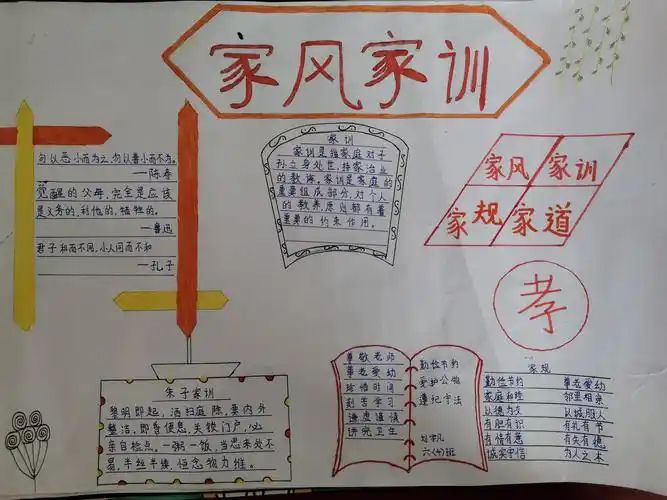 家风家训
勿以恶小而为之,勿以善小而不为。
—陈寿
觉醒的父母,完全是应该
是义务的,利他的,牺牲的。
—鲁迅
君子和而不同,小人同而不和
—孔子
家训
家训是指家庭对子
孙立身处世、持家治业
的教诲。家训是家庭的
重要组成部分,对个人
的教养原则都有着
重要的约束作用。
家风 家训
家规 家道
孝
朱子家训
黎明即起,洒扫庭除,要内外
整洁,即昏便息,关锁门户,必
亲自检点。一粥一饭,当思来处不
易,半丝半缕,恒念物力维。
尊敬老师
尊老爱幼
珍惜时间
刻苦学习
谦虚谨慎
讲究卫生
勤俭节约
爱护公物
遵纪守法
六(4)班
家规
勤俭节约 尊老爱幼
家庭和睦 邻里相亲
以德为次 以诚服人
有胆有识 有礼有节
有情有意 有失有德
诚实守信 为人之本